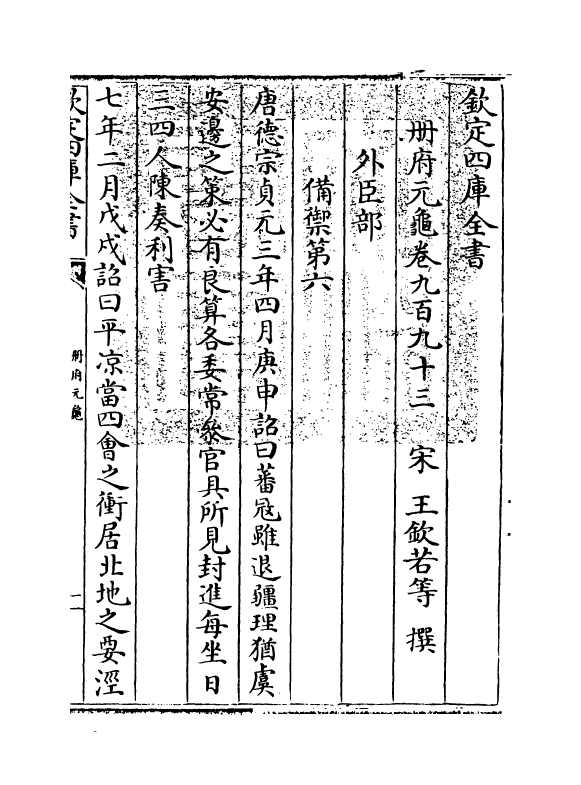 欽定四庫全書
册府元龜卷九百九十三　宋　王欽若等　撰
外臣部
備禦第六
唐德宗貞元三年四月庚申詔曰蕃寇雖退疆理猶虞
安邊之策必有良算各委常參官具所見封進每坐日
三四人陳奏利害
七年二月戊戌詔曰平凉當四會之衝居北地之要涇
欽定四庫全書
册府元龜
一